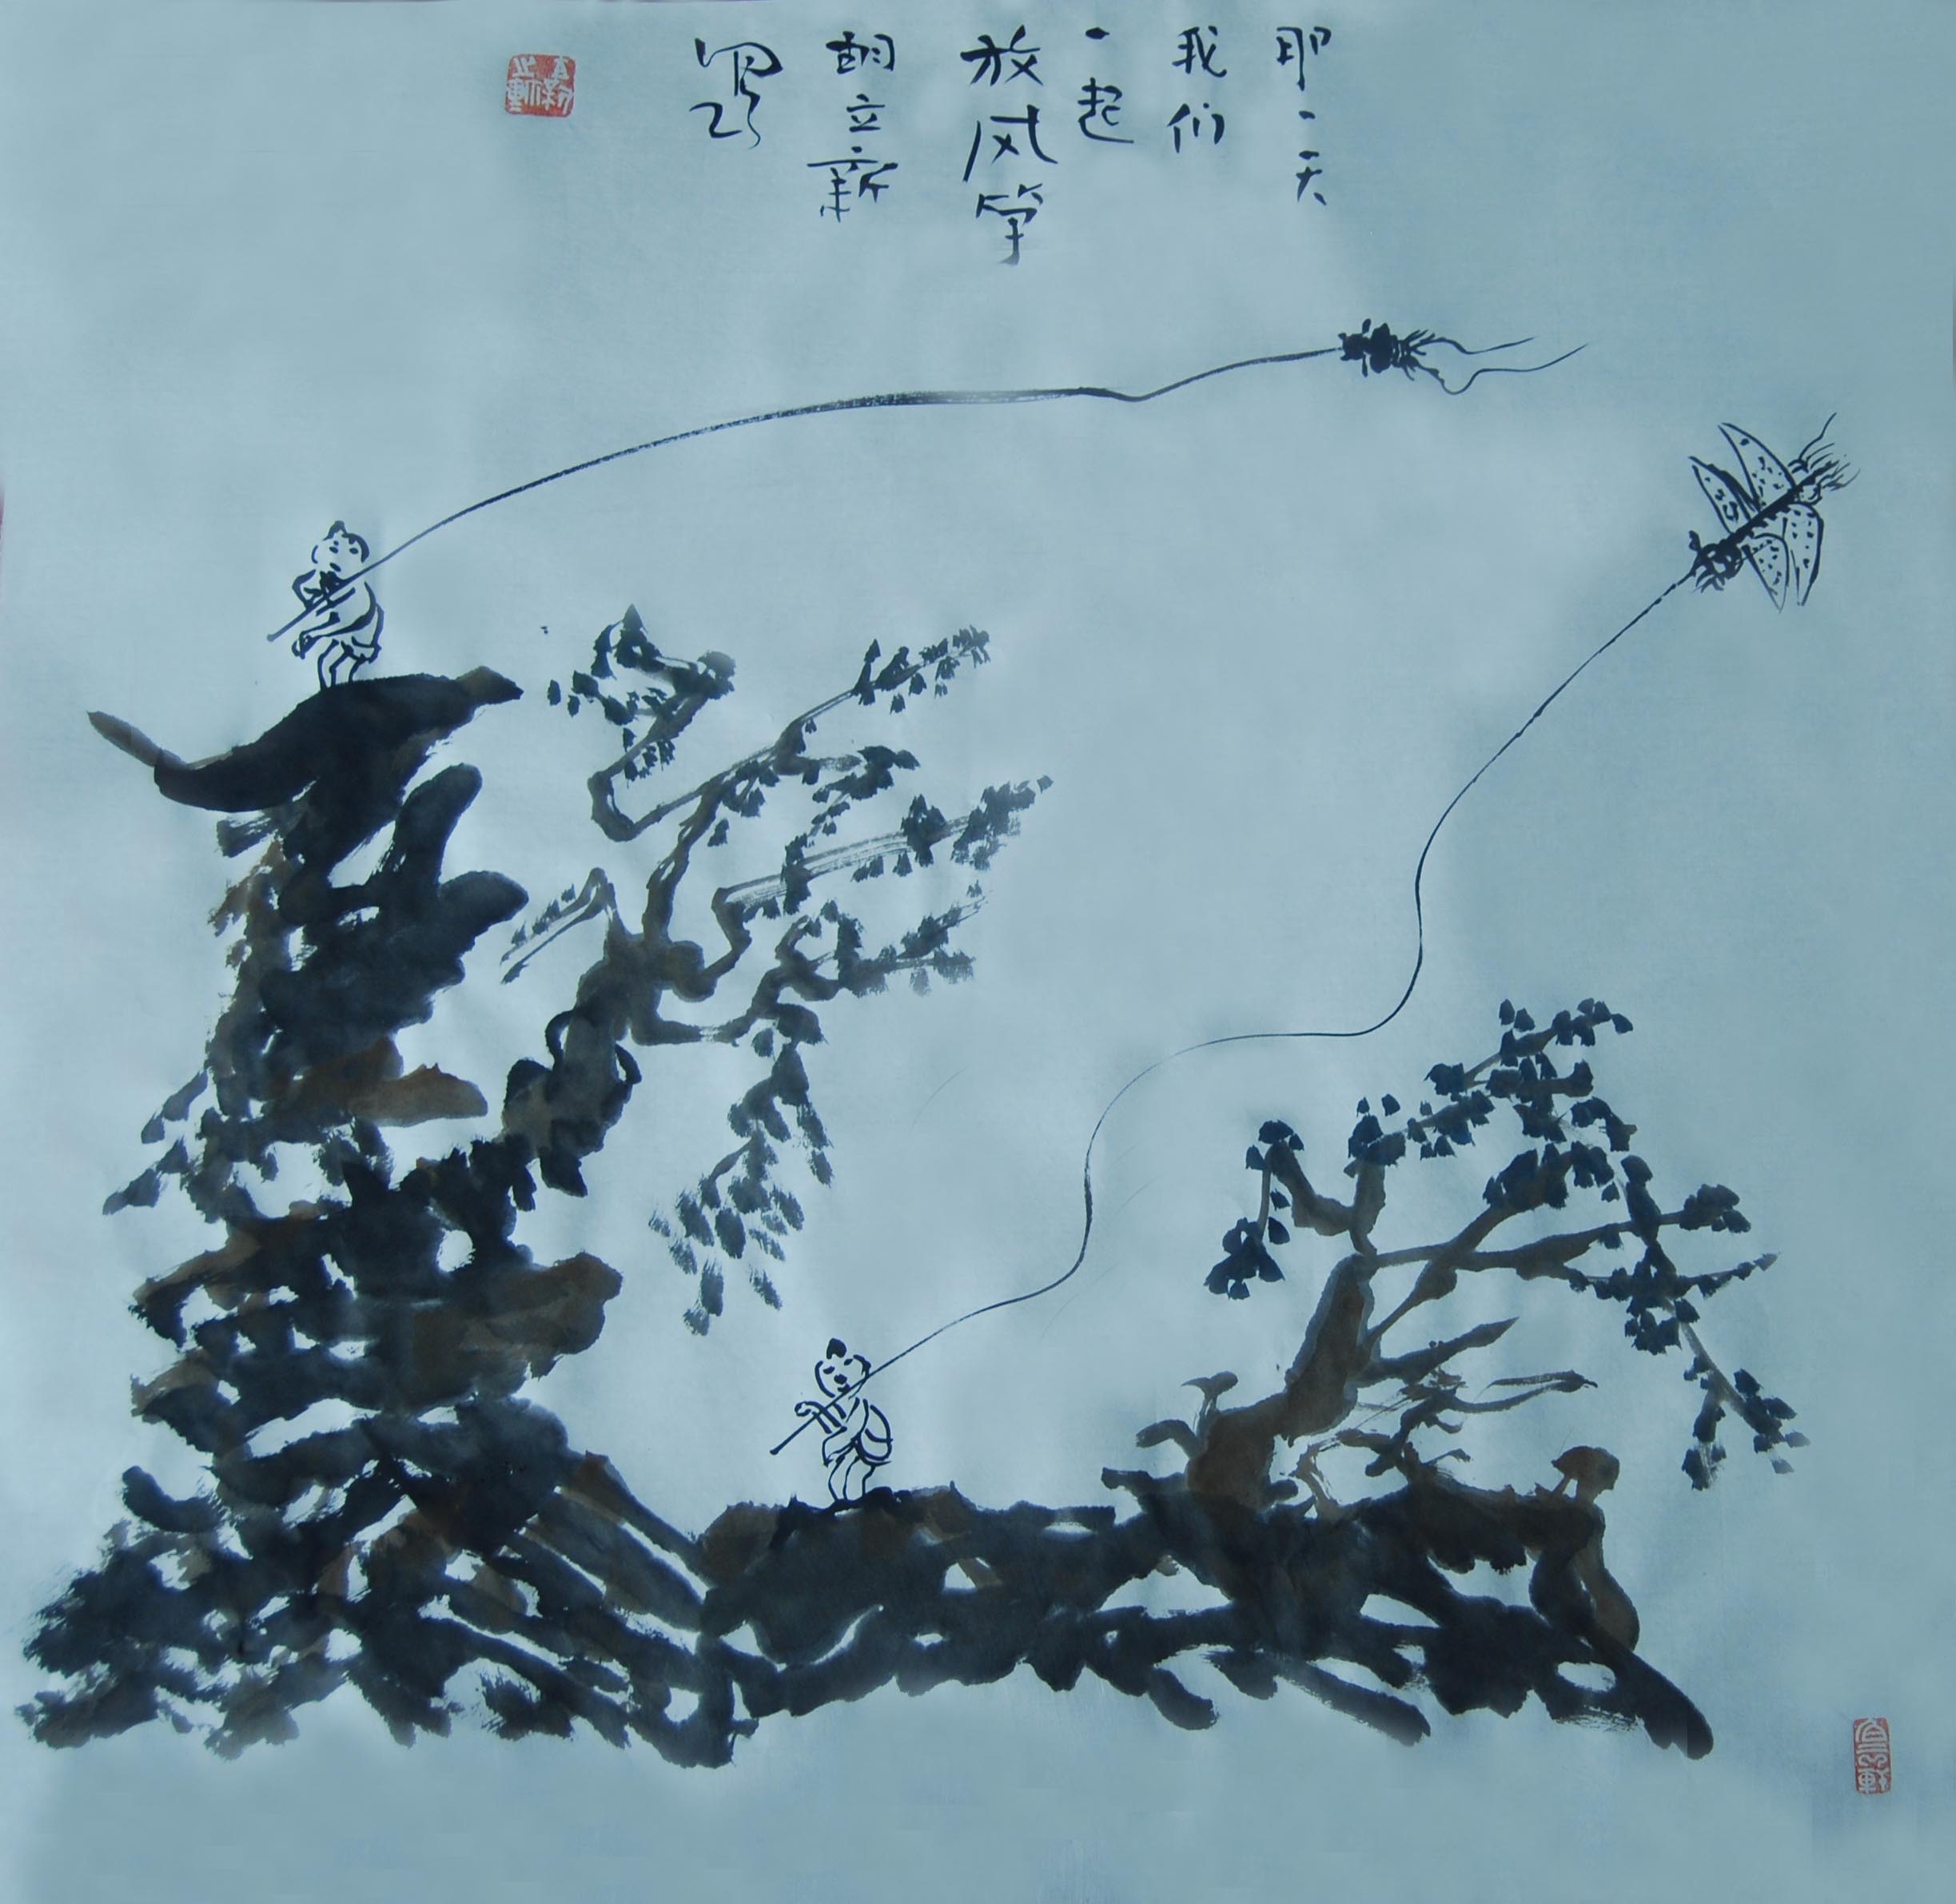 那一天
我们
一起
放风筝
胡立新
写